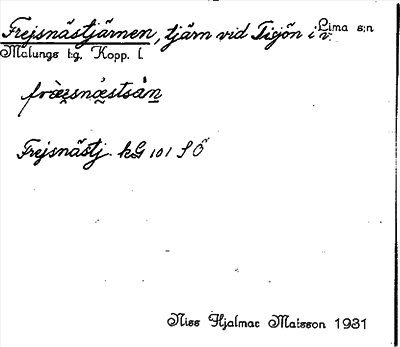 Frejsnästjärnen, tjärn vid Tigön i v. Lima s:n
Malungs t:g, Kopp. l.
Frejsnästj. kG 101 SÖ
Niss Hjalmar Matsson 1931